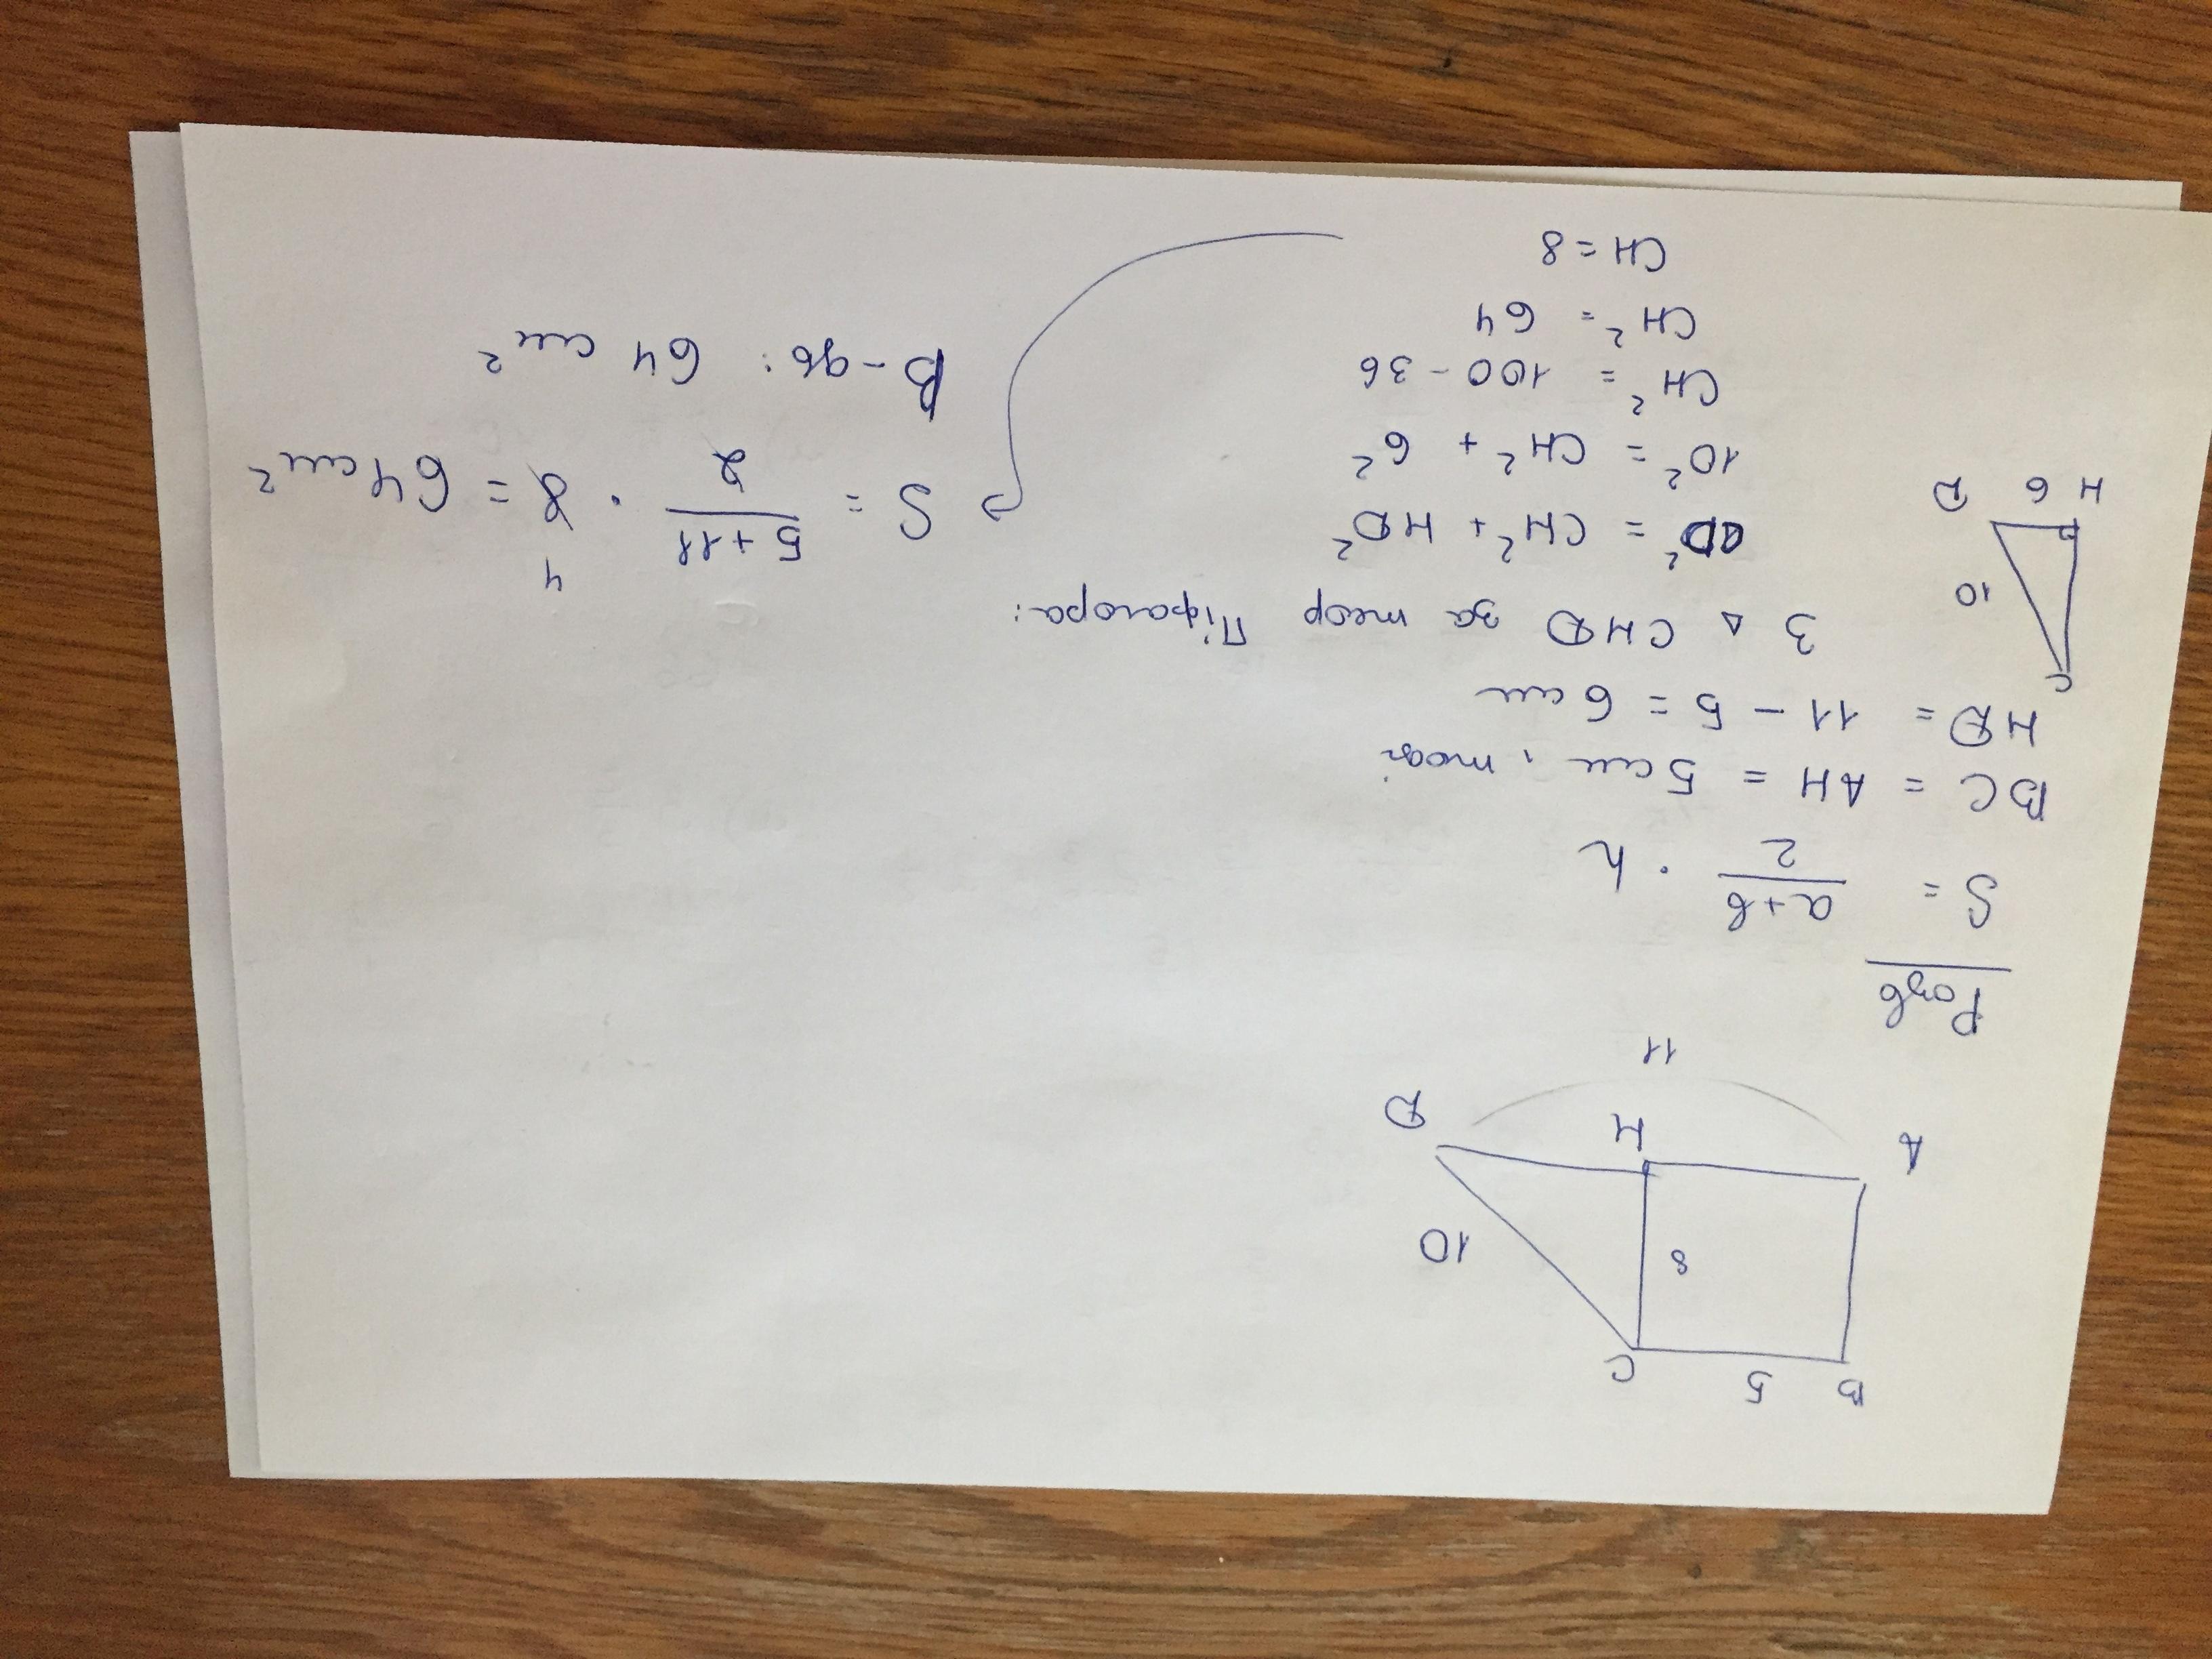 B 5 C
8
10
A H D
11
Розв
S = a+b/2 · h
BC = AH = 5 см, тоді
HD = 11 - 5 = 6 см
C
10
H 6 D
З △ CHD за теор Піфагора:
CD² = CH² + HD²
10² = CH² + 6²
CH² = 100 - 36
CH² = 64
CH = 8
4
S = 5+11/2 · 8 = 64 см²
В-дь: 64 см²